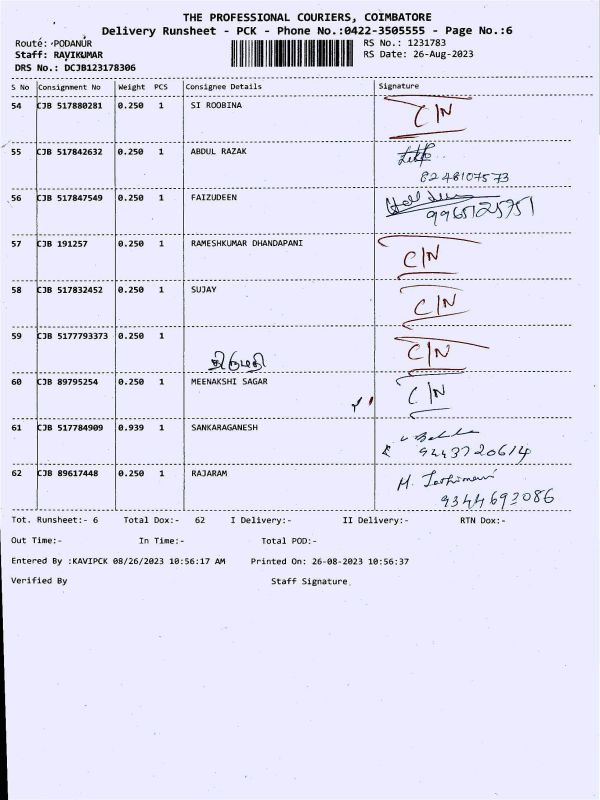 THE PROFESSIONAL COURIERS, COIMBATORE
Delivery Runsheet - PCK - Phone No.:0422-3505555 - Page No.:6
Route: PODANUR
RS No.: 1231783
Staff: RAVIKUMAR
RS Date: 26-Aug-2023
DRS No.: DCJB123178306
S No Consignment No Weight PCS Consignee Details Signature
54 CJB 517880281 0.250 1 SI ROOBINA C/N
55 CJB 517842632 0.250 1 ABDUL RAZAK
8248107573
56 CJB 517847549 0.250 1 FAIZUDEEN
9965125751
57 CJB 191257 0.250 1 RAMESHKUMAR DHANDAPANI C/N
58 CJB 517832452 0.250 1 SUJAY C/N
59 CJB 5177793373 0.250 1 C/N
60 CJB 89795254 0.250 1 MEENAKSHI SAGAR C/N
61 CJB 517784909 0.939 1 SANKARAGANESH
9443720614
62 CJB 89617448 0.250 1 RAJARAM
9344693086
Tot. Runsheet:- 6 Total Dox:- 62 I Delivery:- II Delivery:- RTN Dox:-
Out Time:- In Time:- Total POD:-
Entered By :KAVIPCK 08/26/2023 10:56:17 AM Printed On: 26-08-2023 10:56:37
Verified By Staff Signature